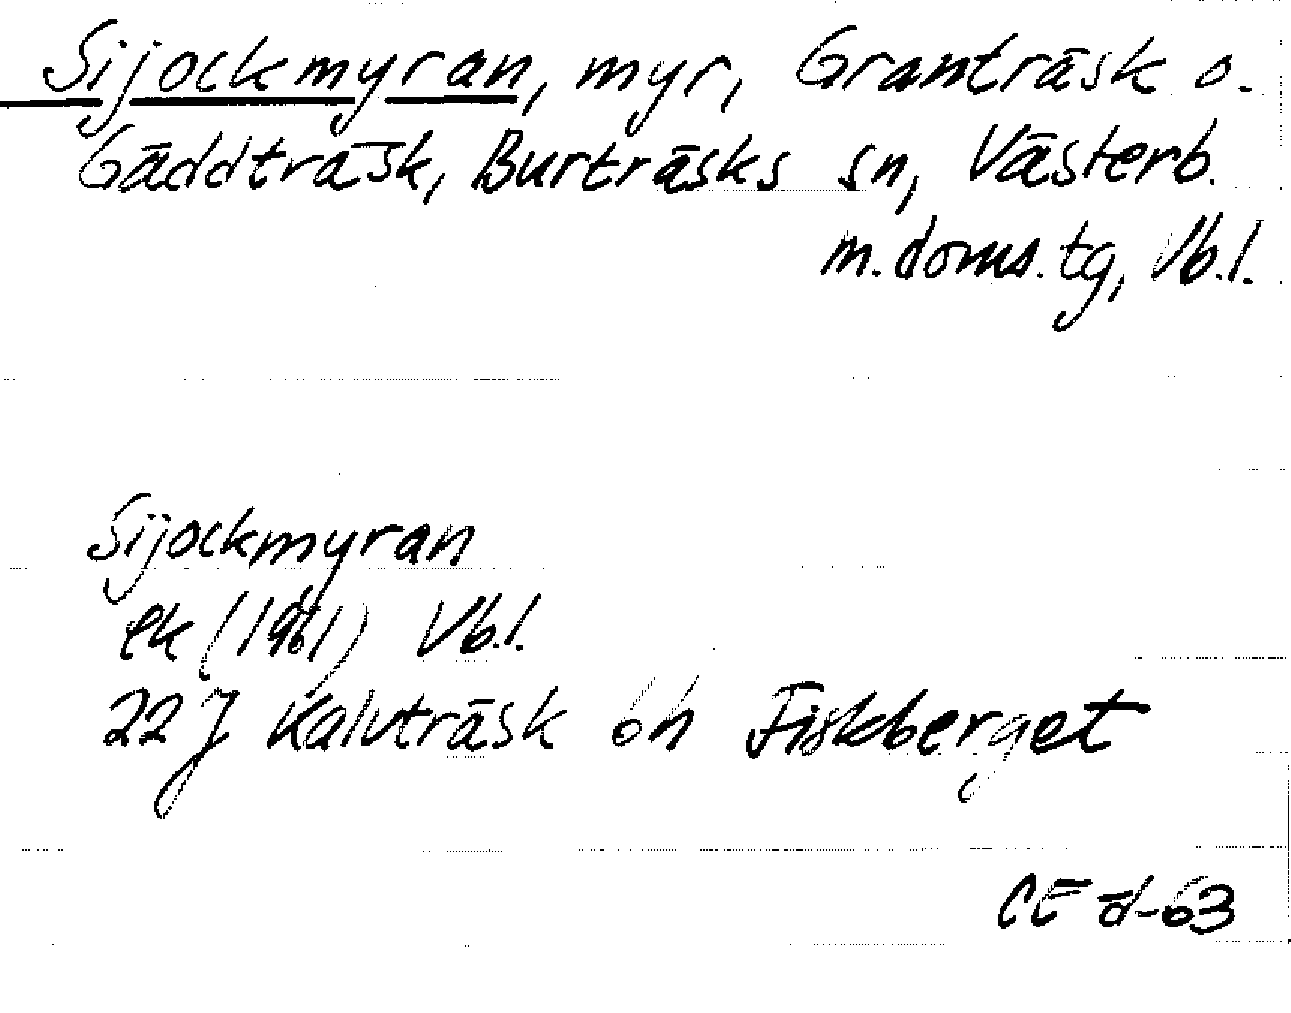 Sijockmyran, myr, Granträsk o.
Gäddträsk, Burträsks sn, Västerb.
m. doms. tg, Vb. l.
Sijockmyran
ek (1961) Vb. l.
22 J Kalvträsk 6h Fiskberget
CE d-63